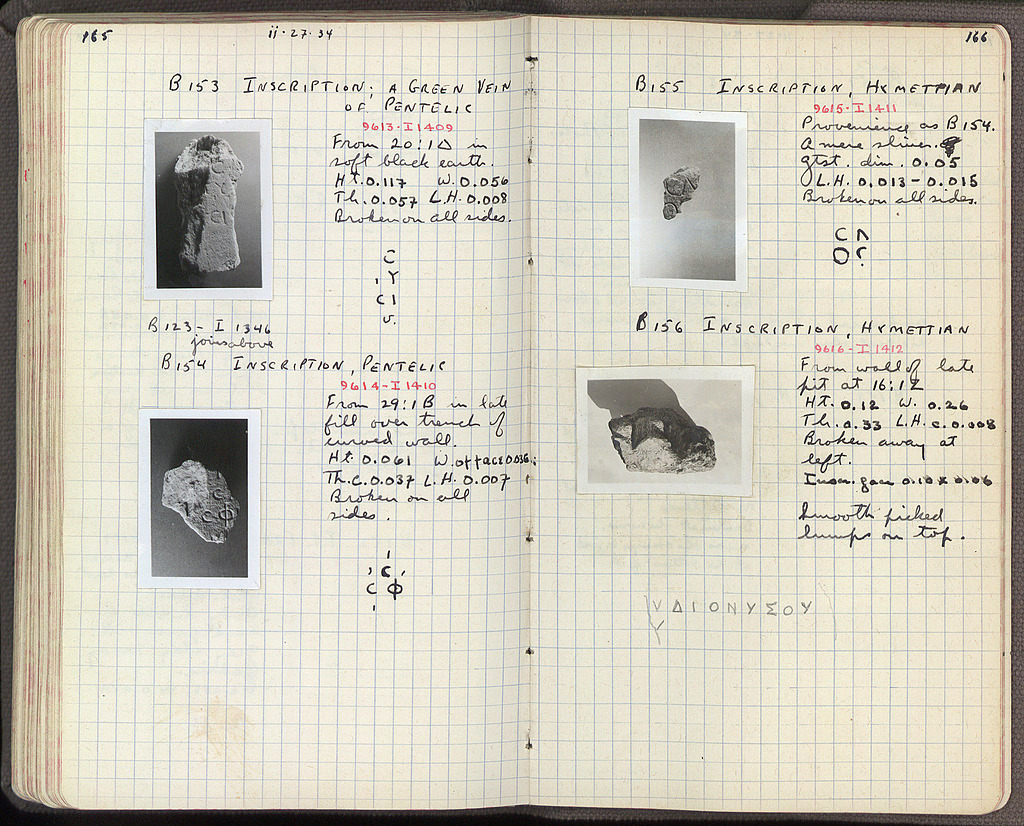 165
ii·27·34
B153 INSCRIPTION; A GREEN VEIN
OF PENTELIC
9613·I 1409
From 20:1Δ in
soft black earth.
Ht. 0.117 W. 0.056
Th. 0.057 L.H. 0.008
Broken on all sides.
C
, Y
CI
B 123 – I 1346
joins above
B154 INSCRIPTION, PENTELIC
9614–I 1410
From 29:1B in late
fill over trench of
curved wall.
Ht. 0.061 W. of face 0.036;
Th. c. 0.037 L.H. 0.007
Broken on all
sides.
, C ,
C Φ
166
B155 INSCRIPTION, HYMETTIAN
9615·I 1411
Provenience as B154.
A mere sliver.
gtst. dim. 0.05
L.H. 0.013–0.015
Broken on all sides.
B156 INSCRIPTION, HYMETTIAN
9616·I 1412
From wall of late
pit at 16:1Z
Ht. 0.12 W. 0.26
Th. 0.33 L.H. c. 0.008
Broken away at
left.
Inscr. face 0.10 x 0.06
Smooth picked
lumps on top.
Υ Δ Ι Ο Ν Υ Σ Ο Υ
Υ